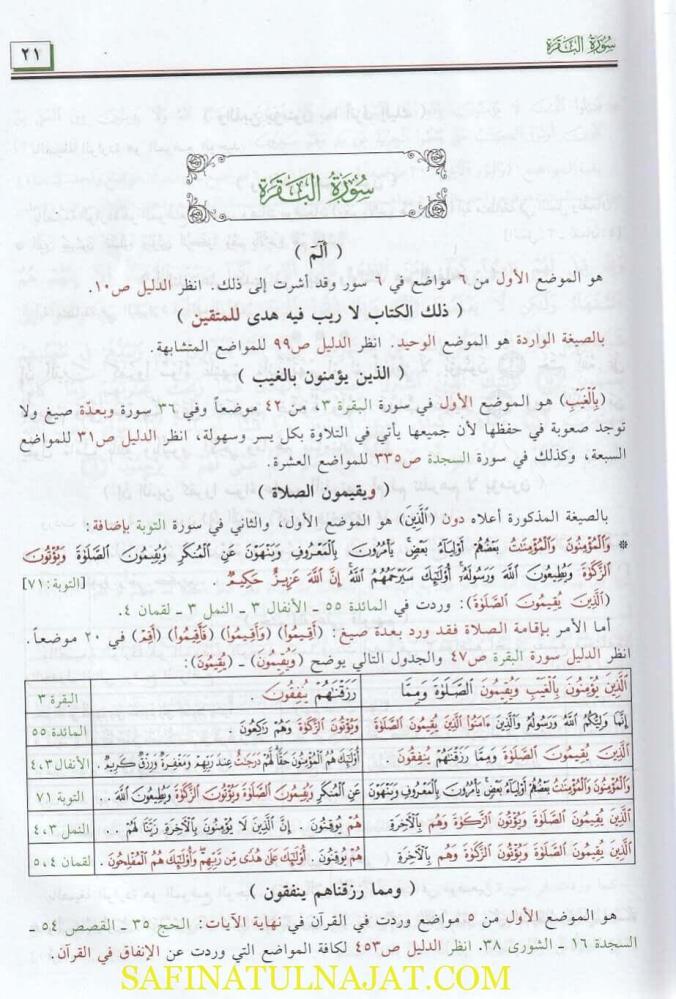 سُورَةُ البَقَرَة
٢١
سُورَةُ البَقَرَة
( الٓمٓ )
هو الموضع الأول من ٦ مواضع في ٦ سور وقد أشرت إلى ذلك، انظر الدليل ص١٠.
( ذلك الكتاب لا ريب فيه هدى للمتقين )
بالصيغة الواردة هو الموضع الوحيد. انظر الدليل ص٩٩ للمواضع المتشابهة.
( الذين يؤمنون بالغيب )
(بِالْغَيْبِ) هو الموضع الأول في سورة البقرة ٣، من ٤٢ موضعاً وفي ٣٦ سورة وبعدّة صيغ ولا
توجد صعوبة في حفظها لأن جميعها يأتي في التلاوة بكل يسر وسهولة، انظر الدليل ص٣١ للمواضع
السبعة، وكذلك في سورة السجدة ص٣٣٥ للمواضع العشرة.
( ويقيمون الصلاة )
بالصيغة المذكورة أعلاه دون (الَّذِينَ) هو الموضع الأول، والثاني في سورة التوبة بإضافة:
* وَالْمُؤْمِنُونَ وَالْمُؤْمِنَٰتُ بَعْضُهُمْ أَوْلِيَآءُ بَعْضٍ يَأْمُرُونَ بِالْمَعْرُوفِ وَيَنْهَوْنَ عَنِ الْمُنكَرِ وَيُقِيمُونَ الصَّلَوٰةَ وَيُؤْتُونَ
الزَّكَوٰةَ وَيُطِيعُونَ اللَّهَ وَرَسُولَهُۥٓ أُوْلَٰٓئِكَ سَيَرْحَمُهُمُ اللَّهُ إِنَّ اللَّهَ عَزِيزٌ حَكِيمٌ . [التوبة: ٧١]
(الَّذِينَ يُقِيمُونَ الصَّلَوٰةَ): وردت في المائدة ٥٥ ـ الأنفال ٣ ـ النمل ٣ ـ لقمان ٤.
أما الأمر بإقامة الصلاة فقد ورد بعدة صيغ: (أَقِيمُوا) (وَأَقِيمُوا) (فَأَقِيمُوا) (أَقِمِ) في ٢٠ موضعاً.
انظر الدليل سورة البقرة ص٤٧ والجدول التالي يوضح (وَيُقِيمُونَ) ـ (يُقِيمُونَ):
الَّذِينَ يُؤْمِنُونَ بِالْغَيْبِ وَيُقِيمُونَ الصَّلَوٰةَ وَمِمَّا رَزَقْنَٰهُمْ يُنفِقُونَ . البقرة ٣
إِنَّمَا وَلِيُّكُمُ اللَّهُ وَرَسُولُهُۥ وَالَّذِينَ ءَامَنُوا الَّذِينَ يُقِيمُونَ الصَّلَوٰةَ وَيُؤْتُونَ الزَّكَوٰةَ وَهُمْ رَٰكِعُونَ . المائدة ٥٥
الَّذِينَ يُقِيمُونَ الصَّلَوٰةَ وَمِمَّا رَزَقْنَٰهُمْ يُنفِقُونَ . أُوْلَٰٓئِكَ هُمُ الْمُؤْمِنُونَ حَقًّا لَّهُمْ دَرَجَٰتٌ عِندَ رَبِّهِمْ وَمَغْفِرَةٌ وَرِزْقٌ كَرِيمٌ . الأنفال ٤،٣
وَالْمُؤْمِنُونَ وَالْمُؤْمِنَٰتُ بَعْضُهُمْ أَوْلِيَآءُ بَعْضٍ يَأْمُرُونَ بِالْمَعْرُوفِ وَيَنْهَوْنَ عَنِ الْمُنكَرِ وَيُقِيمُونَ الصَّلَوٰةَ وَيُؤْتُونَ الزَّكَوٰةَ وَيُطِيعُونَ اللَّهَ .. التوبة ٧١
الَّذِينَ يُقِيمُونَ الصَّلَوٰةَ وَيُؤْتُونَ الزَّكَوٰةَ وَهُم بِالْآخِرَةِ هُمْ يُوقِنُونَ . إِنَّ الَّذِينَ لَا يُؤْمِنُونَ بِالْآخِرَةِ زَيَّنَّا لَهُمْ .. النمل ٤،٣
الَّذِينَ يُقِيمُونَ الصَّلَوٰةَ وَيُؤْتُونَ الزَّكَوٰةَ وَهُم بِالْآخِرَةِ هُمْ يُوقِنُونَ . أُوْلَٰٓئِكَ عَلَىٰ هُدًى مِّن رَّبِّهِمْ وَأُوْلَٰٓئِكَ هُمُ الْمُفْلِحُونَ . لقمان ٥،٤
( ومما رزقناهم ينفقون )
هو الموضع الأول من ٥ مواضع وردت في القرآن في نهاية الآيات: الحج ٣٥ ـ القصص ٥٤ ـ
السجدة ١٦ ـ الشورى ٣٨. انظر الدليل ص٤٥٣ لكافة المواضع التي وردت عن الإنفاق في القرآن.
SAFINATULNAJAT.COM